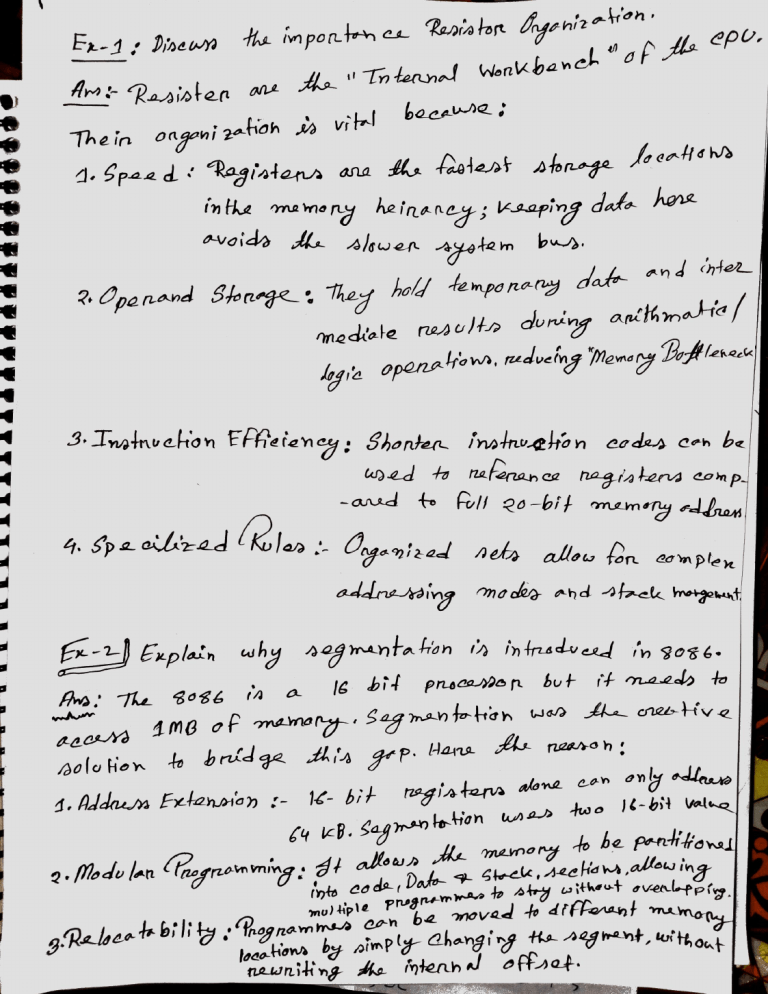 Ex-1: Discuss the importance Resistor Organization.
Ans:- Resister are the "Internal Workbench" of the CPU.
Their organization is vital because:
1. Speed: Registers are the fastest storage locations
inthe memory heirarcy; keeping data here
avoids the slower system bus.
2. Operand Storage: They hold temporary data and inter
mediate results during arithmatic/
logic operations, reducing "Memory Bottleneck
3. Instruction Efficiency: Shorter instruction codes can be
used to reference registers comp-
-ared to full 20-bit memory address
4. Specilized Rules:- Organized sets allow for complex
addressing modes and stack
Ex-2 Explain why segmentation is introduced in 8086.
Ans: The 8086 is a 16 bit processor but it needs to
access 1MB of memory. Segmentation was the creative
solution to bridge this gap. Here the reason:
1. Address Extension :- 16-bit registers alone can only address
64 KB. Segmentation uses two 16-bit value
2. Modular Programming: It allows the memory to be partitioned
into code, Data & Stack, sections, allowing
multiple programmes to stay without overlapping.
3. Relocatability: Programmes can be moved to different memory
locations by simply changing the segment, without
rewriting the internal offset.